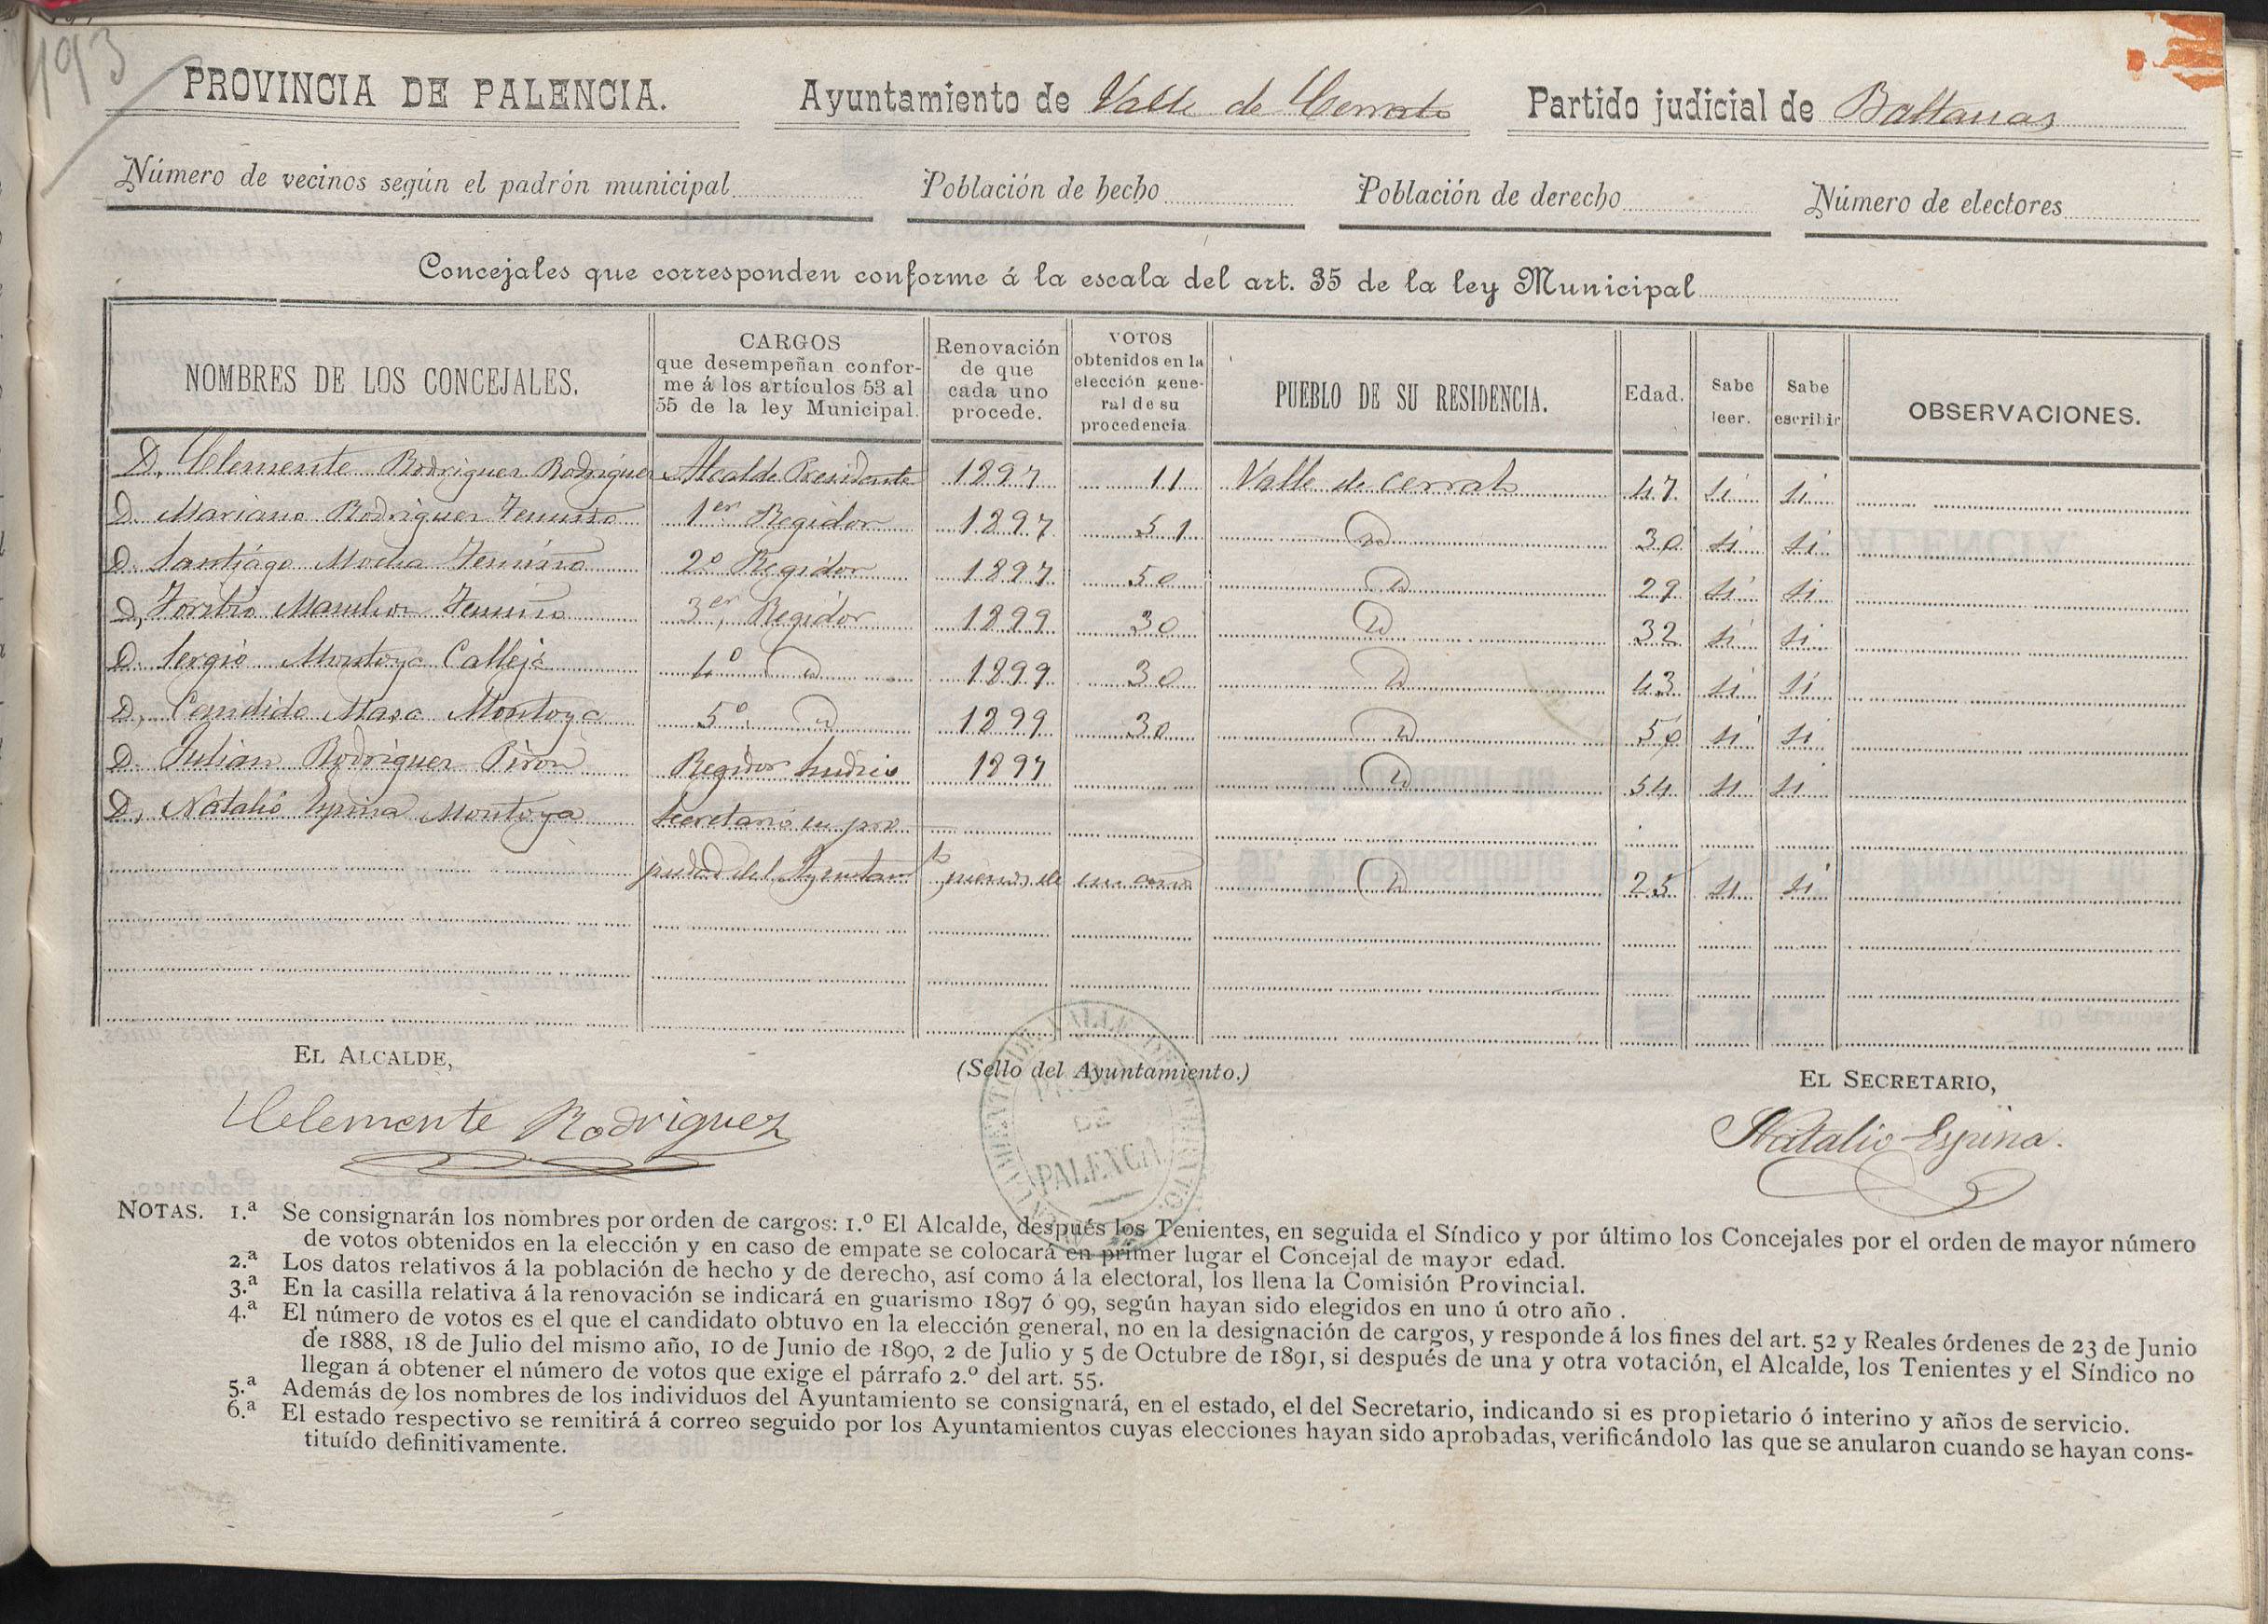 193
PROVINCIA DE PALENCIA. Ayuntamiento de Valle de Cerrato Partido judicial de Baltanas
Número de vecinos según el padrón municipal Población de hecho Población de derecho Número de electores
Concejales que corresponden conforme á la escala del art. 35 de la ley Municipal
NOMBRES DE LOS CONCEJALES. CARGOS que desempeñan conforme á los artículos 53 al 55 de la ley Municipal. Renovación de que cada uno procede. VOTOS obtenidos en la elección general de su procedencia PUEBLO DE SU RESIDENCIA. Edad. Sabe leer. Sabe escribir OBSERVACIONES.
D. Clemente Rodriguez Rodriguez Alcalde Presidente 1897 11 Valle de cerrato 47 si si
D. Mariano Rodriguez 1er Regidor 1897 51 id 30 si si
D. Santiago 2º Regidor 1897 50 id 29 si si
D. Toribio 3er Regidor 1899 30 id 32 si si
D. Sergio Montoya Calleja 4º id 1899 30 id 43 si si
D. Candido Maso Montoya 5º id 1899 30 id 50 si si
D. Julian Rodriguez Piron Regidor Sindico 1897 id 54 si si
D. Natalio Espina Montoya Secretario en pro
piedad del Ayuntam to menos de un año id 25 si si
EL ALCALDE, (Sello del Ayuntamiento.) EL SECRETARIO,
Clemente Rodriguez Natalio Espina.
PALENCIA
NOTAS. 1.ª Se consignarán los nombres por orden de cargos: 1.º El Alcalde, después los Tenientes, en seguida el Síndico y por último los Concejales por el orden de mayor número
de votos obtenidos en la elección y en caso de empate se colocará en primer lugar el Concejal de mayor edad.
2.ª Los datos relativos á la población de hecho y de derecho, así como á la electoral, los llena la Comisión Provincial.
3.ª En la casilla relativa á la renovación se indicará en guarismo 1897 ó 99, según hayan sido elegidos en uno ú otro año .
4.ª El número de votos es el que el candidato obtuvo en la elección general, no en la designación de cargos, y responde á los fines del art. 52 y Reales órdenes de 23 de Junio
de 1888, 18 de Julio del mismo año, 10 de Junio de 1890, 2 de Julio y 5 de Octubre de 1891, si después de una y otra votación, el Alcalde, los Tenientes y el Síndico no
llegan á obtener el número de votos que exige el párrafo 2.º del art. 55.
5.ª Además de los nombres de los individuos del Ayuntamiento se consignará, en el estado, el del Secretario, indicando si es propietario ó interino y años de servicio.
6.ª El estado respectivo se remitirá á correo seguido por los Ayuntamientos cuyas elecciones hayan sido aprobadas, verificándolo las que se anularon cuando se hayan cons-
tituído definitivamente.